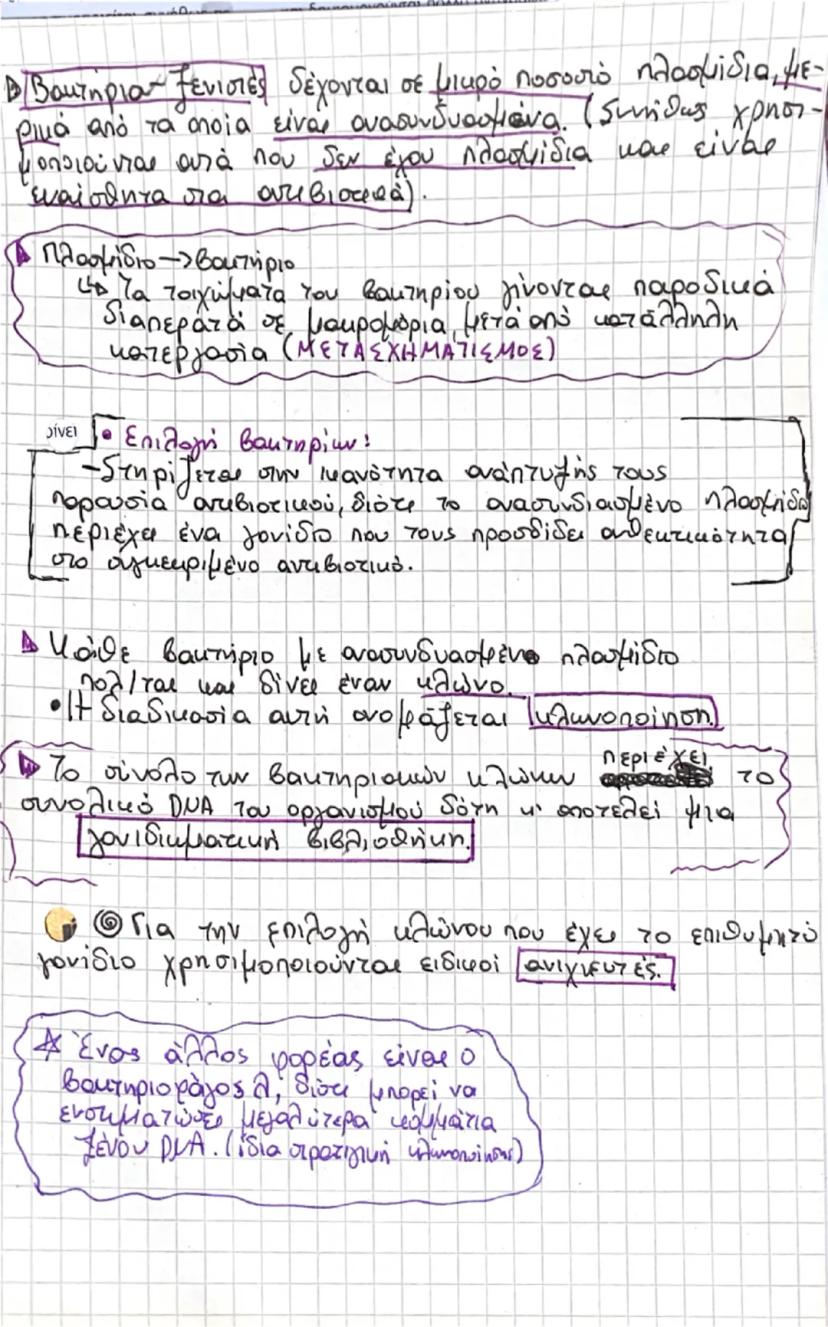 Βακτήρια-ξενιστές δέχονται σε μικρό ποσοστό πλασμίδια, με-
ρικά από τα οποία είναι ανασυνδυασμένα. (Συνήθως χρησι-
μοποιούνται αυτά που δεν έχου πλασμίδια και είναι
ευαίσθητα στα αντιβιοτικά).
Πλασμίδιο → βακτήριο
↳ Τα τοιχώματα του βακτηρίου γίνονται παροδικά
διαπερατά σε μακρομόρια, μετά από κατάλληλη
κατεργασία (ΜΕΤΑΣΧΗΜΑΤΙΣΜΟΣ)
γίνει
• Επιλογή βακτηρίων:
-Στηρίζεται στην ικανότητα ανάπτυξής τους
παρουσία αντιβιοτικού, διότι το ανασυνδιασμένο πλασμίδιο
περιέχει ένα γονίδιο που τους προσδίδει ανθεκτικότητα
στο συγκεκριμένο αντιβιοτικό.
Κάθε βακτήριο με ανασυνδυασμένο πλασμίδιο
πολ/ται και δίνει έναν κλώνο.
• Η διαδικασία αυτή ονομάζεται κλωνοποίηση.
Το σύνολο των βακτηριακών κλώνων περιέχει το
συνολικό DNA του οργανισμού δότη κ' αποτελεί μια
γονιδιωματική βιβλιοθήκη.
Για την επιλογή κλώνου που έχει το επιθυμητό
γονίδιο χρησιμοποιούνται ειδικοί ανιχνευτές.
☆ Ένας άλλος φορέας είναι ο
βακτηριοφάγος λ, διότι μπορεί να
ενσωματώσει μεγαλύτερα κομμάτια
ξένου DNA. (ίδια στρατηγική κλωνοποίησης)